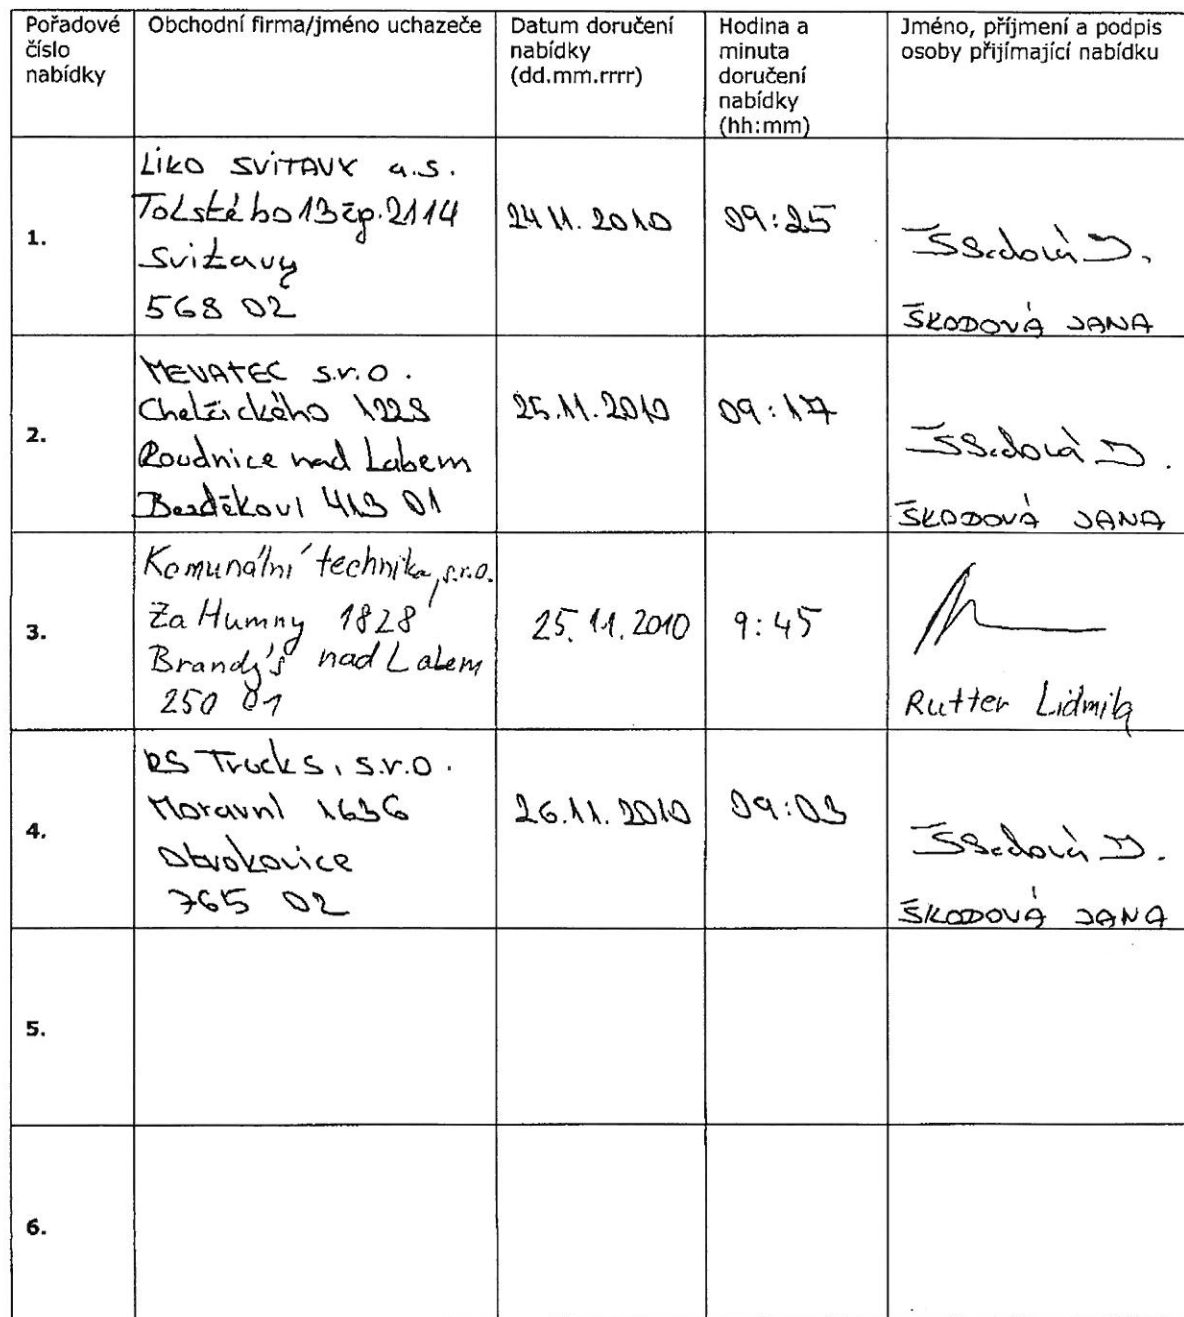 Pořadové číslo nabídky
Obchodní firma/jméno uchazeče
Datum doručení nabídky (dd.mm.rrrr)
Hodina a minuta doručení nabídky (hh:mm)
Jméno, příjmení a podpis osoby přijímající nabídku
1.
LIKO SVITAVY a.s.
Tolstého 13 čp. 2114
Svitavy
568 02
24.11.2010
09:25
ŠKODOVÁ JANA
2.
MEVATEC s.r.o.
Chelčického 1228
Roudnice nad Labem
Bezděkov 413 01
25.11.2010
09:17
ŠKODOVÁ JANA
3.
Komunální technika, s.r.o.
Za Humny 1828
Brandýs nad Labem
250 01
25.11.2010
9:45
Rutter Lidmila
4.
RS Trucks, s.r.o.
Moravní 1636
Otrokovice
765 02
26.11.2010
09:03
ŠKODOVÁ JANA
5.
6.